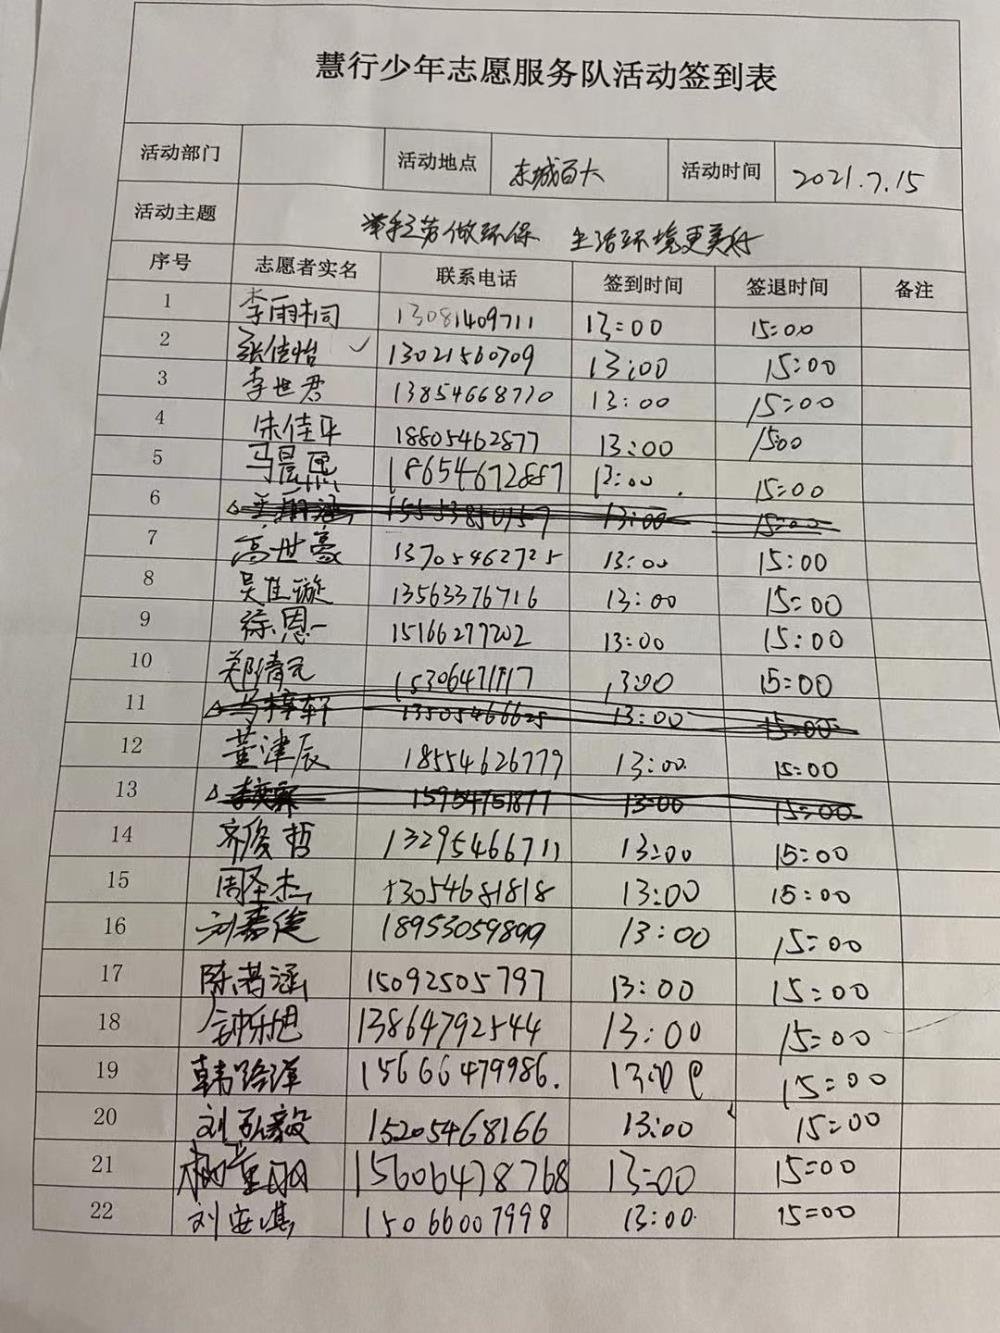 慧行少年志愿服务队活动签到表
活动部门 活动地点 东城百大 活动时间 2021.7.15
活动主题 做环保 生活环境更美好
序号 志愿者实名 联系电话 签到时间 签退时间 备注
1 李雨桐 13081409711 13:00 15:00
2 张佳怡 ✓ 13021560709 13:00 15:00
3 李世君 13854668770 13:00 15:00
4 朱佳平 18805462877 13:00 15:00
5 马晨熙 18654672887 13:00 15:00
6 13:00 15:00
7 高世豪 13705462725 13:00 15:00
8 吴佳璇 13563376716 13:00 15:00
9 徐恩一 15166277202 13:00 15:00
10 郑清元 13:00 15:00
11 马梓轩 13505466625 13:00 15:00
12 黄津辰 18554626779 13:00 15:00
13 15954751877 13:00 15:00
14 齐俊哲 13295466711 13:00 15:00
15 周圣杰 13054681818 13:00 15:00
16 刘嘉俊 18953059899 13:00 15:00
17 陈若涵 15092505797 13:00 15:00
18 13864792544 13:00 15:00
19 韩路泽 15666479986. 13:00 15:00
20 刘弘毅 15205468166 13:00 15:00
21 15606478768 13:00 15:00
22 刘安淇 15066007998 13:00 15:00